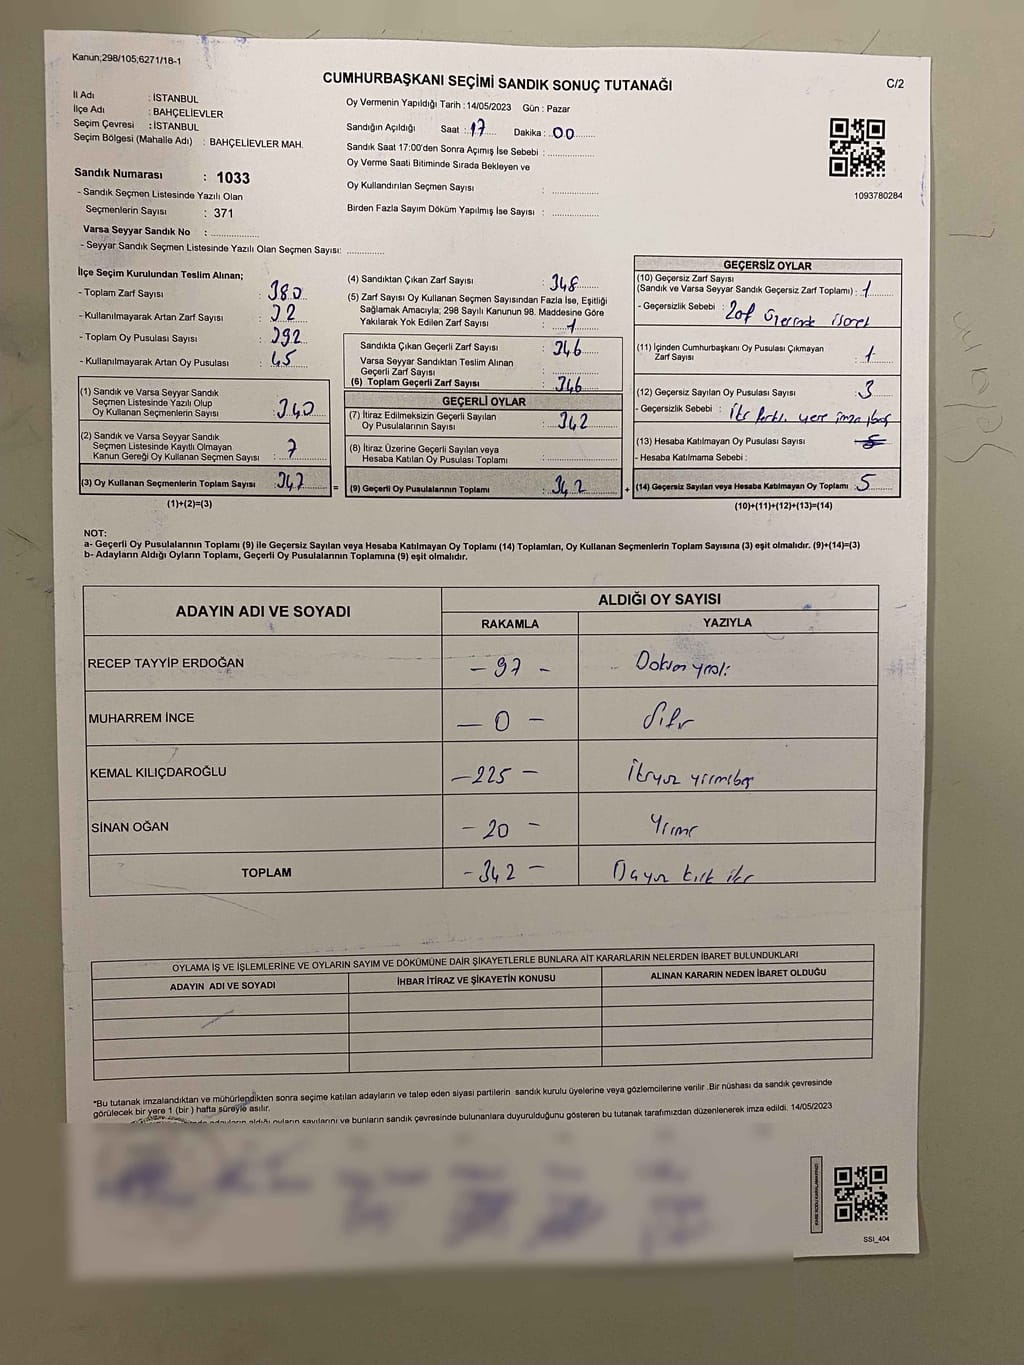 Kanun;298/105;6271/18-1
CUMHURBAŞKANI SEÇİMİ SANDIK SONUÇ TUTANAĞI
C/2
İl Adı : İSTANBUL
İlçe Adı : BAHÇELİEVLER
Seçim Çevresi : İSTANBUL
Seçim Bölgesi (Mahalle Adı) : BAHÇELİEVLER MAH.
Sandık Numarası : 1033
- Sandık Seçmen Listesinde Yazılı Olan
Seçmenlerin Sayısı : 371
Varsa Seyyar Sandık No : ....................
- Seyyar Sandık Seçmen Listesinde Yazılı Olan Seçmen Sayısı: ..............
Oy Vermenin Yapıldığı Tarih : 14/05/2023 Gün : Pazar
Sandığın Açıldığı Saat : 17 Dakika : 00
Sandık Saat 17:00'den Sonra Açımış İse Sebebi : ..............
Oy Verme Saati Bitiminde Sırada Bekleyen ve
Oy Kullandırılan Seçmen Sayısı : ..............
Birden Fazla Sayım Döküm Yapılmış İse Sayısı : ..............
1093780284
İlçe Seçim Kurulundan Teslim Alınan;
- Toplam Zarf Sayısı : 380
- Kullanılmayarak Artan Zarf Sayısı : 32
- Toplam Oy Pusulası Sayısı : 392
- Kullanılmayarak Artan Oy Pusulası : 45
(1) Sandık ve Varsa Seyyar Sandık
Seçmen Listesinde Yazılı Olup
Oy Kullanan Seçmenlerin Sayısı : 340
(2) Sandık ve Varsa Seyyar Sandık
Seçmen Listesinde Kayıtlı Olmayan
Kanun Gereği Oy Kullanan Seçmen Sayısı : 7
(3) Oy Kullanan Seçmenlerin Toplam Sayısı : 347
(1)+(2)=(3)
=
(4) Sandıktan Çıkan Zarf Sayısı : 348
(5) Zarf Sayısı Oy Kullanan Seçmen Sayısından Fazla İse, Eşitliği
Sağlamak Amacıyla; 298 Sayılı Kanunun 98. Maddesine Göre
Yakılarak Yok Edilen Zarf Sayısı : 1
Sandıkta Çıkan Geçerli Zarf Sayısı : 346
Varsa Seyyar Sandıktan Teslim Alınan
Geçerli Zarf Sayısı : ..............
(6) Toplam Geçerli Zarf Sayısı : 346
GEÇERLİ OYLAR
(7) İtiraz Edilmeksizin Geçerli Sayılan
Oy Pusulalarının Sayısı : 342
(8) İtiraz Üzerine Geçerli Sayılan veya
Hesaba Katılan Oy Pusulası Toplamı : ..............
(9) Geçerli Oy Pusulalarının Toplamı : 342
+
GEÇERSİZ OYLAR
(10) Geçersiz Zarf Sayısı
(Sandık ve Varsa Seyyar Sandık Geçersiz Zarf Toplamı) : 1
- Geçersizlik Sebebi : Zarf üzerinde işaret
(11) İçinden Cumhurbaşkanı Oy Pusulası Çıkmayan
Zarf Sayısı : 1
(12) Geçersiz Sayılan Oy Pusulası Sayısı : 3
- Geçersizlik Sebebi : İki farklı yere imza
(13) Hesaba Katılmayan Oy Pusulası Sayısı
- Hesaba Katılmama Sebebi :
(14) Geçersiz Sayılan veya Hesaba Katılmayan Oy Toplamı : 5
(10)+(11)+(12)+(13)=(14)
NOT:
a- Geçerli Oy Pusulalarının Toplamı (9) ile Geçersiz Sayılan veya Hesaba Katılmayan Oy Toplamı (14) Toplamları, Oy Kullanan Seçmenlerin Toplam Sayısına (3) eşit olmalıdır. (9)+(14)=(3)
b- Adayların Aldığı Oyların Toplamı, Geçerli Oy Pusulalarının Toplamına (9) eşit olmalıdır.
ADAYIN ADI VE SOYADI
ALDIĞI OY SAYISI
RAKAMLA
YAZIYLA
RECEP TAYYİP ERDOĞAN - 97 - Doksan yedi
MUHARREM İNCE - 0 - Sıfır
KEMAL KILIÇDAROĞLU - 225 - İkiyüz yirmibeş
SİNAN OĞAN - 20 - Yirmi
TOPLAM - 342 - Üçyüz kırk iki
OYLAMA İŞ VE İŞLEMLERİNE VE OYLARIN SAYIM VE DÖKÜMÜNE DAİR ŞİKAYETLERLE BUNLARA AİT KARARLARIN NELERDEN İBARET BULUNDUKLARI
ADAYIN ADI VE SOYADI
İHBAR İTİRAZ VE ŞİKAYETİN KONUSU
ALINAN KARARIN NEDEN İBARET OLDUĞU
*Bu tutanak imzalandıktan ve mühürlendikten sonra seçime katılan adayların ve talep eden siyasi partilerin sandık kurulu üyelerine veya gözlemcilerine verilir .Bir nüshası da sandık çevresinde
görülecek bir yere 1 (bir ) hafta süreyle asılır.
adayların aldığı oyların sayılarını ve bunların sandık çevresinde bulunanlara duyurulduğunu gösteren bu tutanak tarafımızdan düzenlenerek imza edildi. 14/05/2023
SSI_404